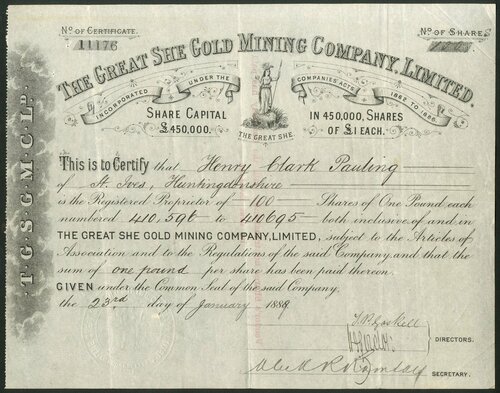 No. OF CERTIFICATE.
11176
No. OF SHARES
THE GREAT SHE GOLD MINING COMPANY, LIMITED.
INCORPORATED UNDER THE COMPANIES ACTS 1862 TO 1886.
SHARE CAPITAL £450,000.
IN 450,000, SHARES OF £1 EACH.
THE GREAT SHE
T.G.S.G.M.C.LD.
This is to Certify that Henry Clark Pauling
of St. Ives, Huntingdonshire
is the Registered Proprietor of 100 Shares of One Pound each
numbered 410,596 to 410695 both inclusive of and in
THE GREAT SHE GOLD MINING COMPANY, LIMITED, subject to the Articles of
Association and to the Regulations of the said Company, and that the
sum of one pound per share has been paid thereon.
GIVEN under the Common Seal of the said Company,
the 23rd day of January 1889.
DIRECTORS.
SECRETARY.